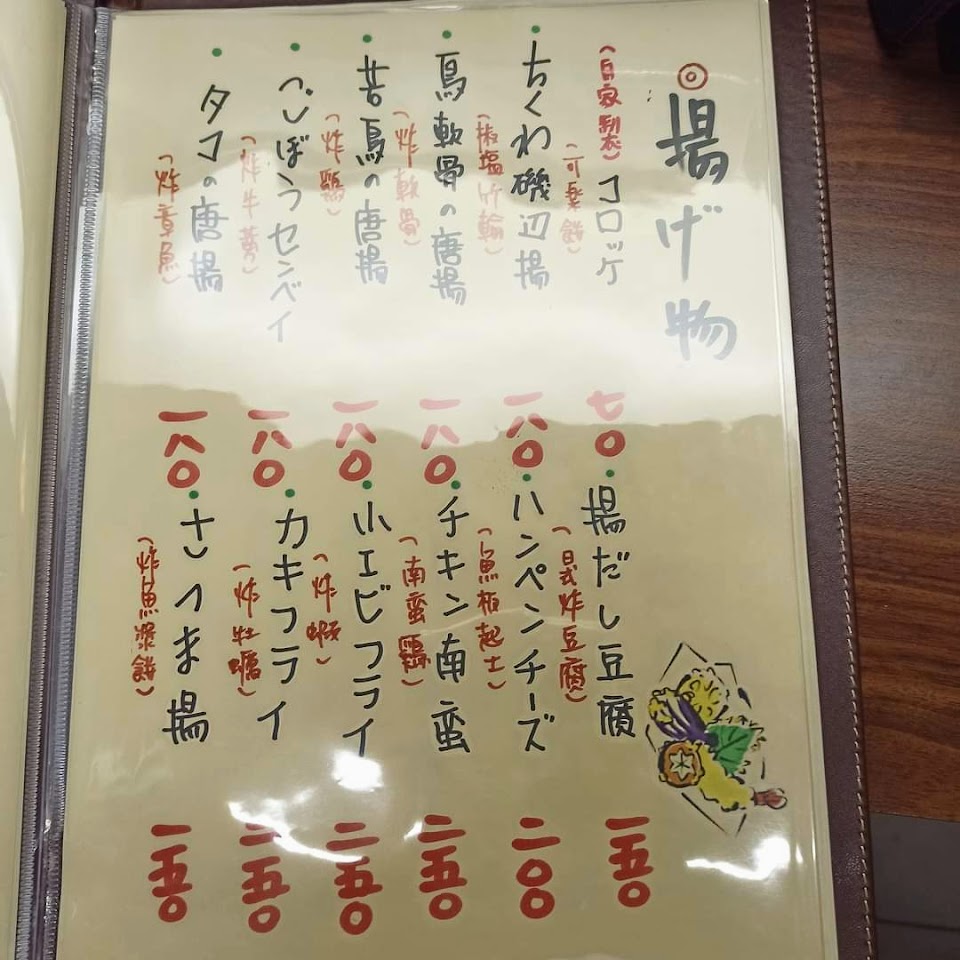 ◎揚げ物
(自家製)コロッケ
(可楽餅)
七〇
・ちくわ磯辺揚
(椒塩竹輪)
一八〇
・鳥軟骨の唐揚
(炸軟骨)
一八〇
・若鳥の唐揚
(炸鶏)
一八〇
・ごぼうセンベイ
(炸牛蒡)
一八〇
・タコの唐揚
(炸章魚)
一八〇
・揚だし豆腐
(日式炸豆腐)
一五〇
・ハンペンチーズ
(魚板起士)
二〇〇
・チキン南蛮
(南蛮鶏)
二五〇
・小エビフライ
(炸蝦)
二五〇
・カキフライ
(炸牡蠣)
二五〇
・さつま揚
(炸魚漿餅)
一五〇